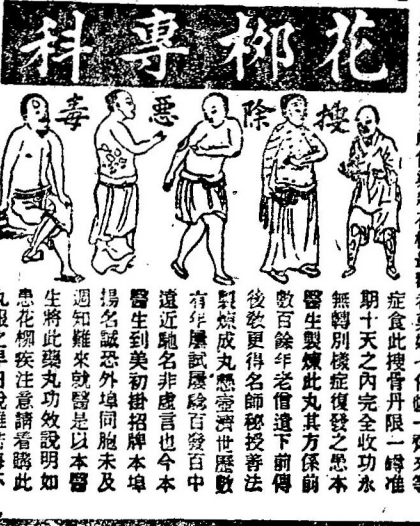 花柳專科
搜除惡毒
症食此搜骨丹限一罇准
期十天之內完全收功永
無轉別樣症復發之患本
醫生製煉此丸其方係前
數百餘年老僧遺下前傳
後敎更得名師秘授善法
製煉成丸懸壺濟世歷數
有年屢試屢騐百發百中
遠近馳名非虛言也今本
醫生到美初掛招牌本埠
揚名誠恐外埠同胞未及
週知難來就醫是以本醫
生將此藥丸功效說明如
患花柳疾注意請看購此